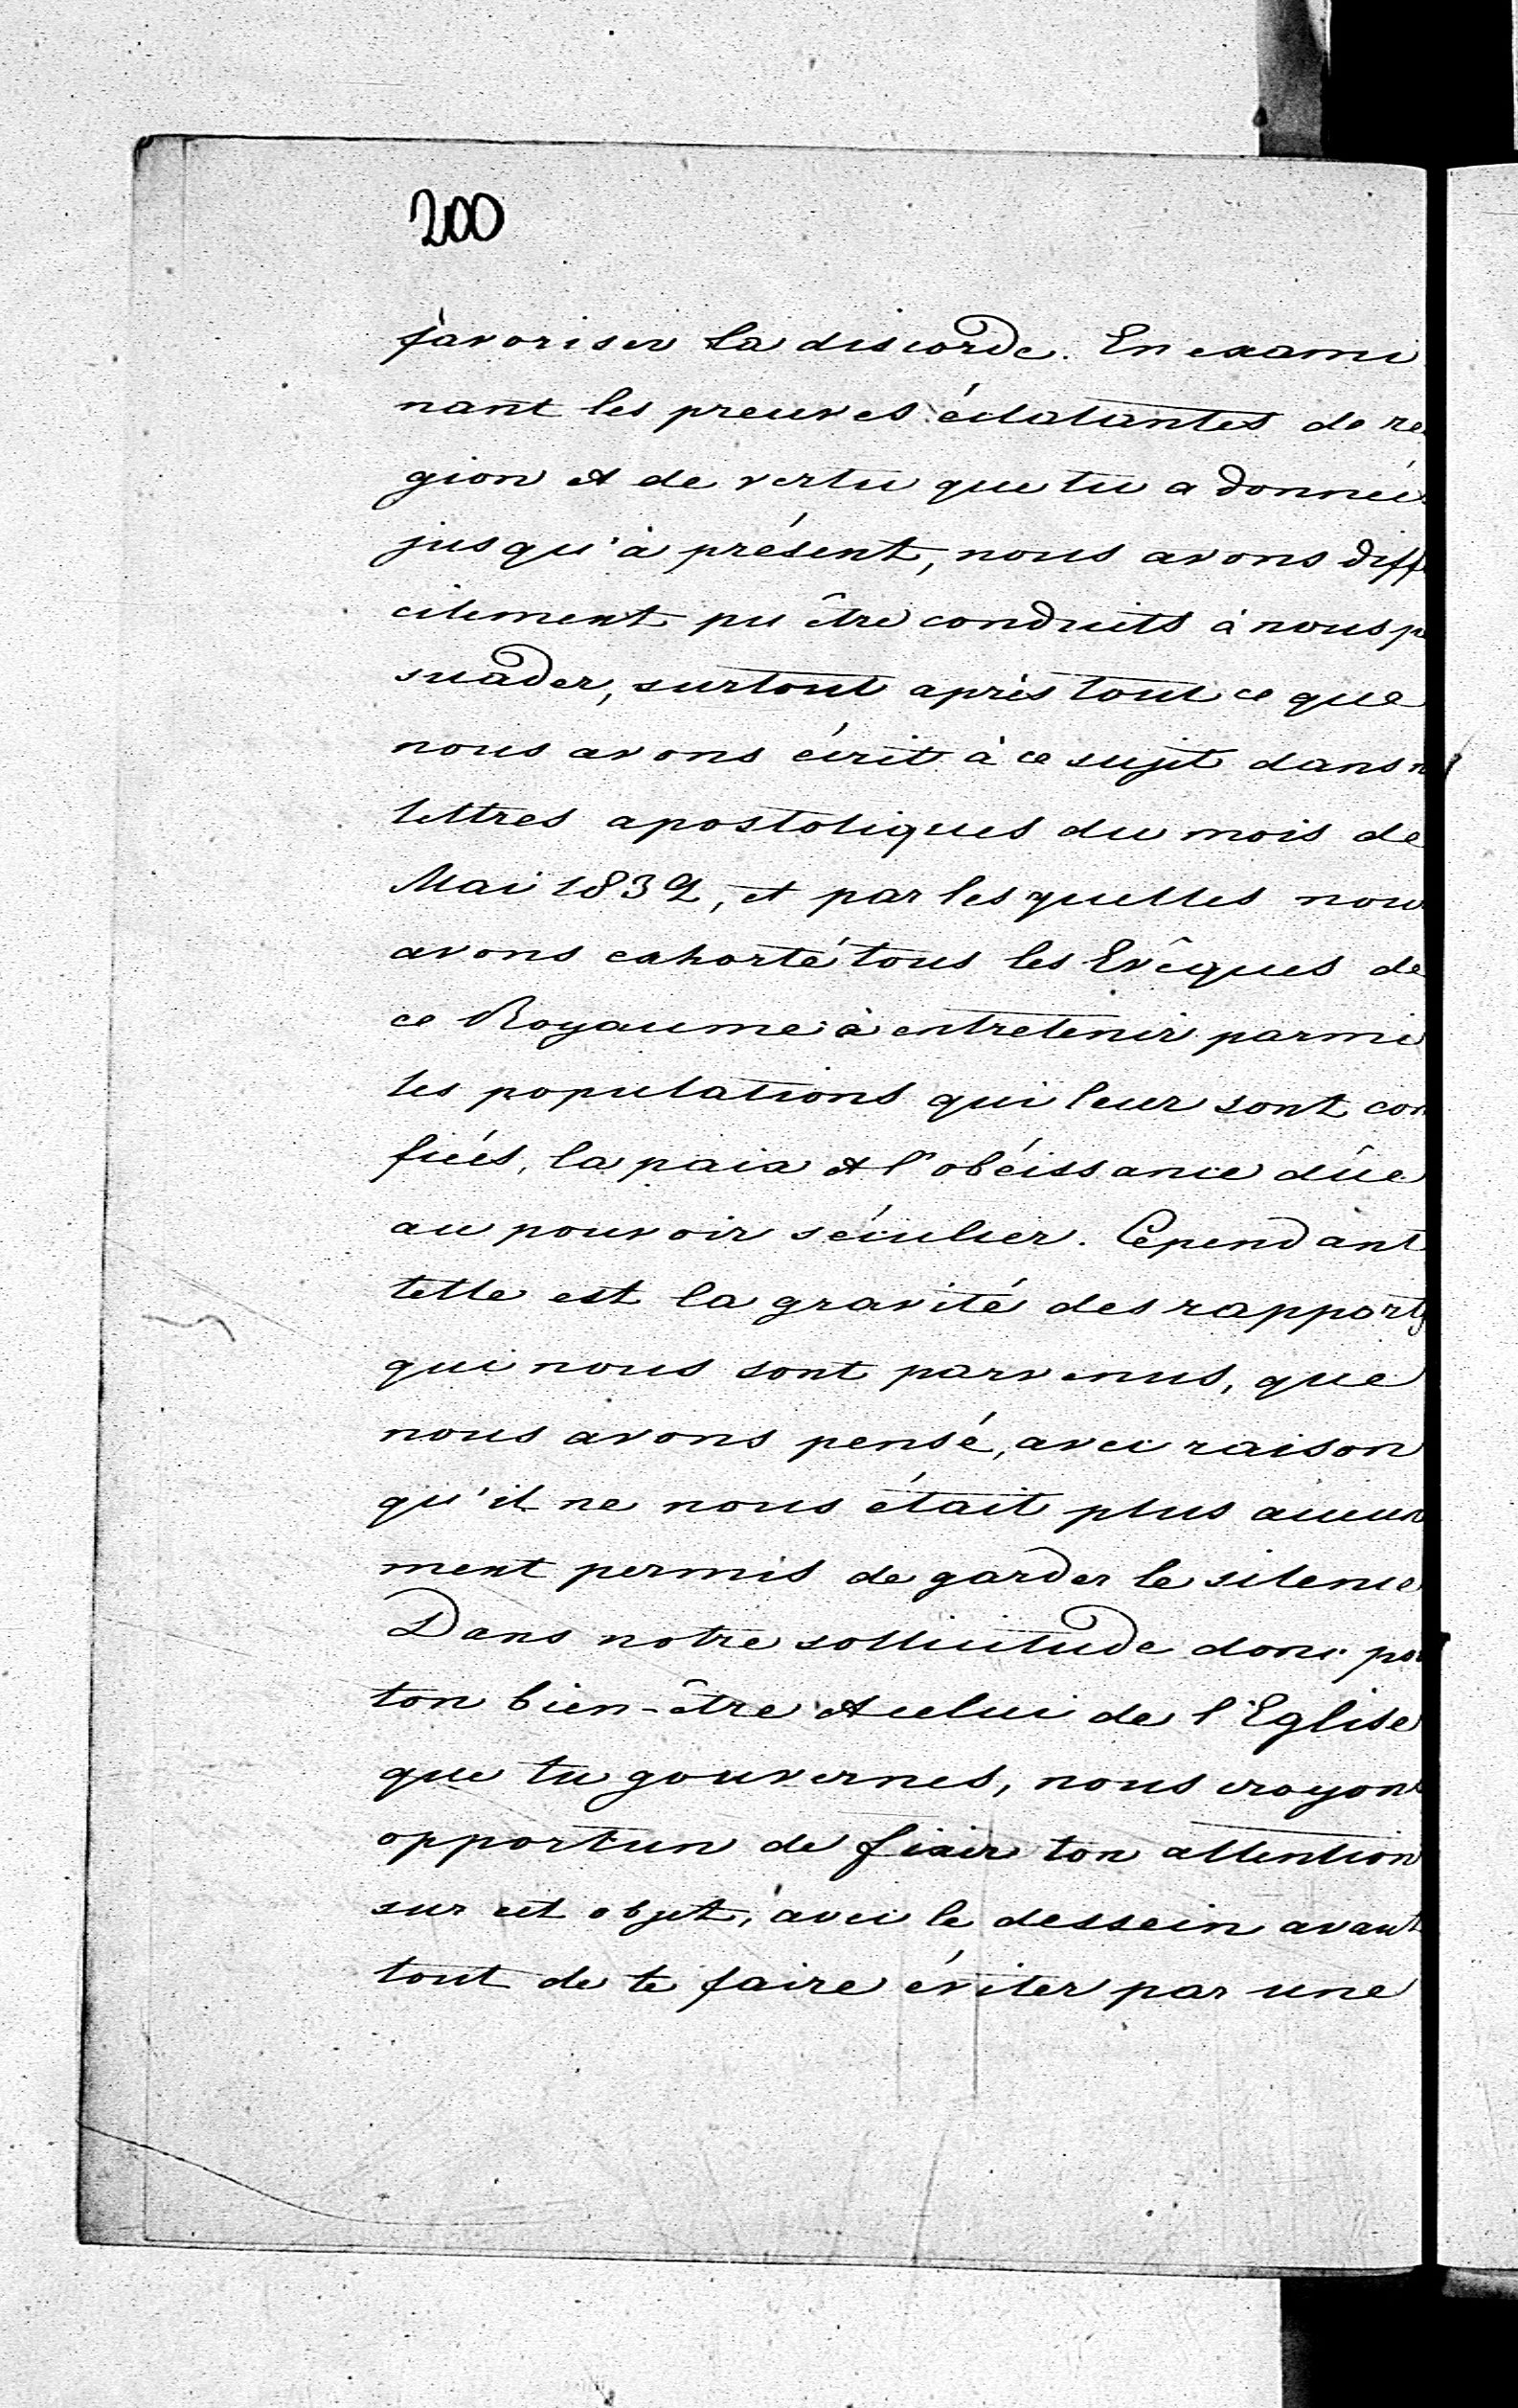 200
favoriser la discorde. En exami
nant les preuves éclatantes de re
gion et de vertu que tu a données
jusqu'à présent, nous avons diffi
cilement pu être conduits à nous pe
suader, surtout après tout ce que
nous avons écrit à ce sujet dans n
lettres apostoliques du mois de
Mai 1832, et par lesquelles nous
avons exhorté tous les Evêques de
ce Royaume à entretenir parmi
les populations qui leur sont con
fiées, la paix et l'obéissance dûe
au pouvoir séculier. Cependant
telle est la gravité des rapports
qui nous sont parvenus, que
nous avons pensé, avec raison
qu'il ne nous était plus aucun
ment permis de garder le silence
Dans notre sollicitude donc po
ton bien-être et celui de l'Eglise
que tu gouvernes, nous croyons
opportun de fixer ton attention
sur cet objet, avec le dessein avant
tout de te faire éviter par une